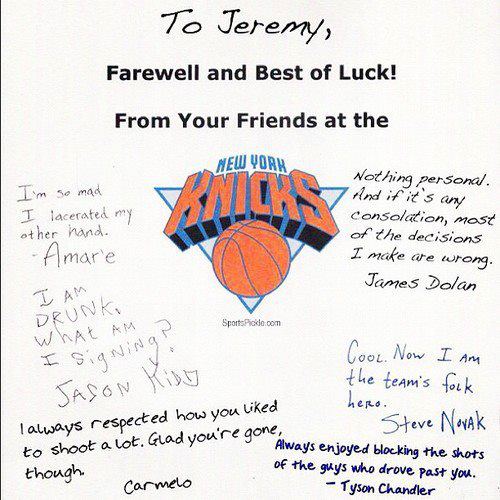 To Jeremy,
Farewell and Best of Luck!
From Your Friends at the
NEW YORK
KNICKS
SportsPickle.com
I'm so mad
I lacerated my
other hand.
- Amar'e
Nothing personal.
And if it's any
consolation, most
of the decisions
I make are wrong.
James Dolan
I AM
DRUNK.
WHAT AM
I SIGNING?
JASON KIDD
COOL. NOW I AM
the TEAM'S folk
hero.
STEVE NOVAK
I always respected how you liked
to shoot a lot. Glad you're gone,
though.
Carmelo
Always enjoyed blocking the shots
of the guys who drove past you.
- Tyson Chandler